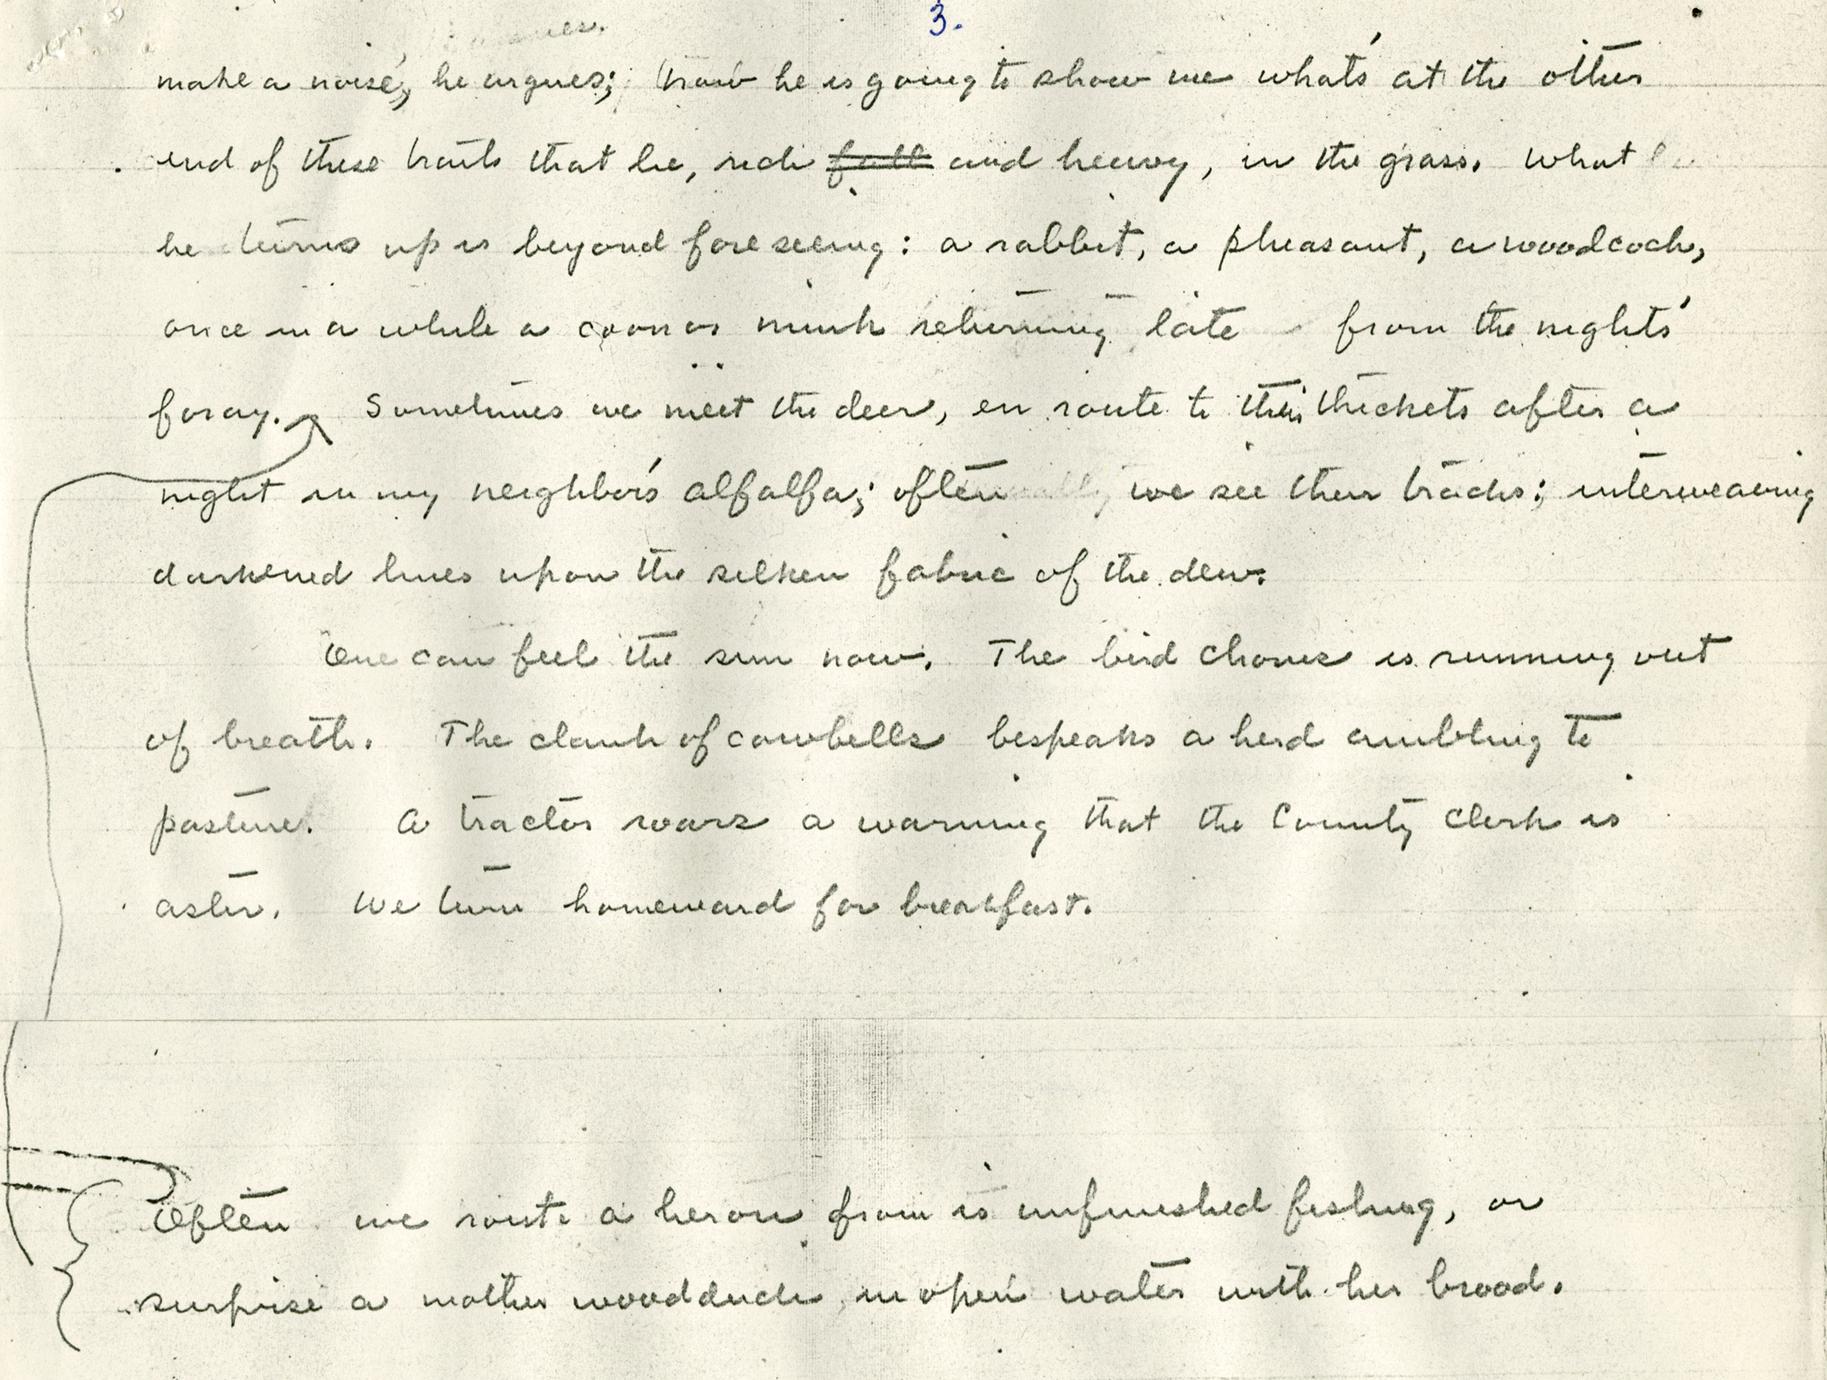 3.
make a noise, he argues; now he is going to show me what's at the other
end of these trails that lie, rich full and heavy, in the grass. What
he turns up is beyond foreseeing: a rabbit, a pheasant, a woodcock,
once in a while a coon or mink returning late from the nights'
foray. Sometimes we meet the deer, en route to their thickets after a
night in my neighbor's alfalfa; often we see their tracks; interweaving
darkened lines upon the silken fabric of the dew.
One can feel the sun now. The bird chorus is running out
of breath. The clank of cowbells bespeaks a herd ambling to
pasture. A tractor roars a warning that the County Clerk is
astir. We turn homeward for breakfast.
Often we route a heron from is unfinished fishing, or
surprise a mother woodduck in open water with her brood.